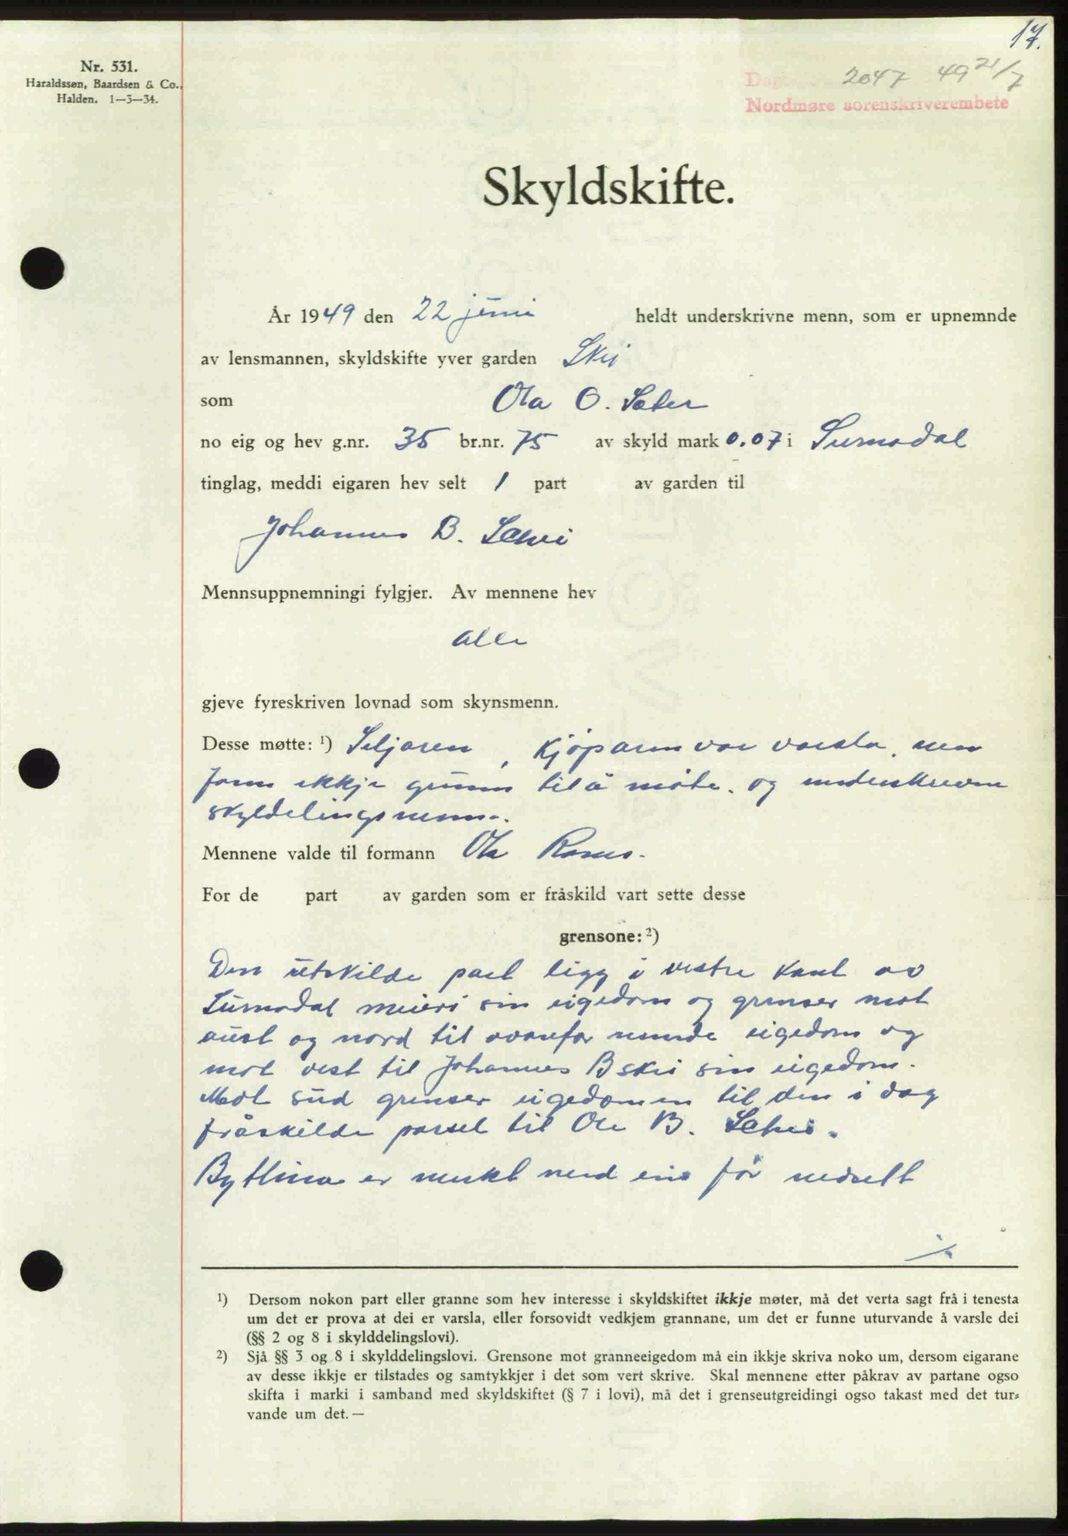 17.
Nr. 531.
Haraldssøn, Baardsen & Co.,
Halden. 1—3—34.
2047 49 21/7
Nordmøre sorenskriverembete
Skyldskifte.
År 1949 den 22 juni heldt underskrivne menn, som er upnemnde
av lensmannen, skyldskifte yver garden Skei
som Ola O. Sæter
no eig og hev g.nr. 35 br.nr. 75 av skyld mark 0.07 i Surnadal
tinglag, meddi eigaren hev selt 1 part av garden til
Johannes B. Schei
Mennsuppnemningi fylgjer. Av mennene hev
alle
gjeve fyreskriven lovnad som skynsmenn.
Desse møtte: ¹) Seljaren, kjöparen var varsla, men
fann ikkje grunn til å møte. og underskrevne
skyldelingsmenn.
Mennene valde til formann Ola
For de part av garden som er fråskild vart sette desse
grensone: ²)
Den utskilde part ligg i vestre kant av
Surnadal meieri sin eigedom og grenser mot
aust og nord til ovanfor nemnde eigedom og
mot vest til Johannes B Skei sin eigedom.
Mot süd grenser eigedomen til den i dag
fråskilde parsel til Ole B. Schei.
Byttina er merkt med ein før nedsett
¹) Dersom nokon part eller granne som hev interesse i skyldskiftet ikkje møter, må det verta sagt frå i tenesta
um det er prova at dei er varsla, eller forsovidt vedkjem grannane, um det er funne uturvande å varsle dei
(§§ 2 og 8 i skylddelingslovi).
²) Sjå §§ 3 og 8 i skylddelingslovi. Grensone mot granneeigedom må ein ikkje skriva noko um, dersom eigarane
av desse ikkje er tilstades og samtykkjer i det som vert skrive. Skal mennene etter påkrav av partane ogso
skifta i marki i samband med skyldskiftet (§ 7 i lovi), må det i grenseutgreidingi ogso takast med det tur-
vande um det. —